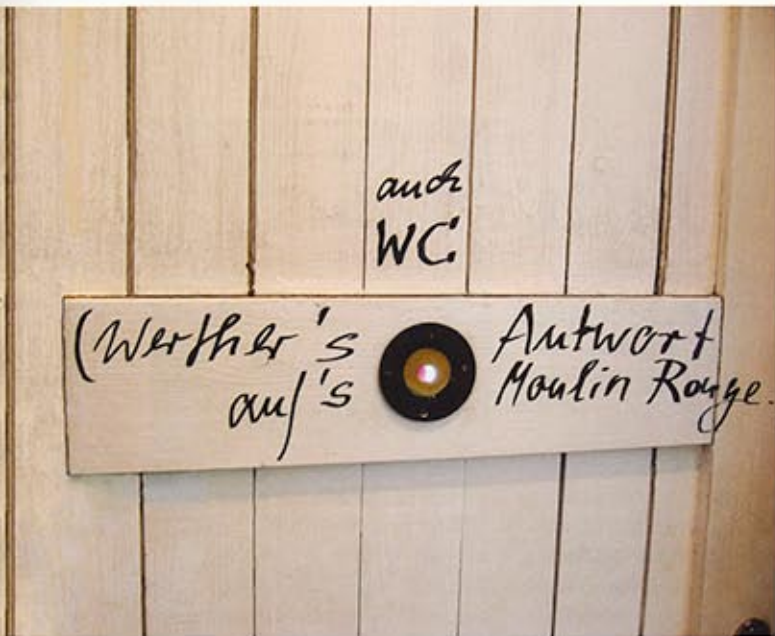 auch
WC
(Werther's Antwort
auf's Moulin Rouge.